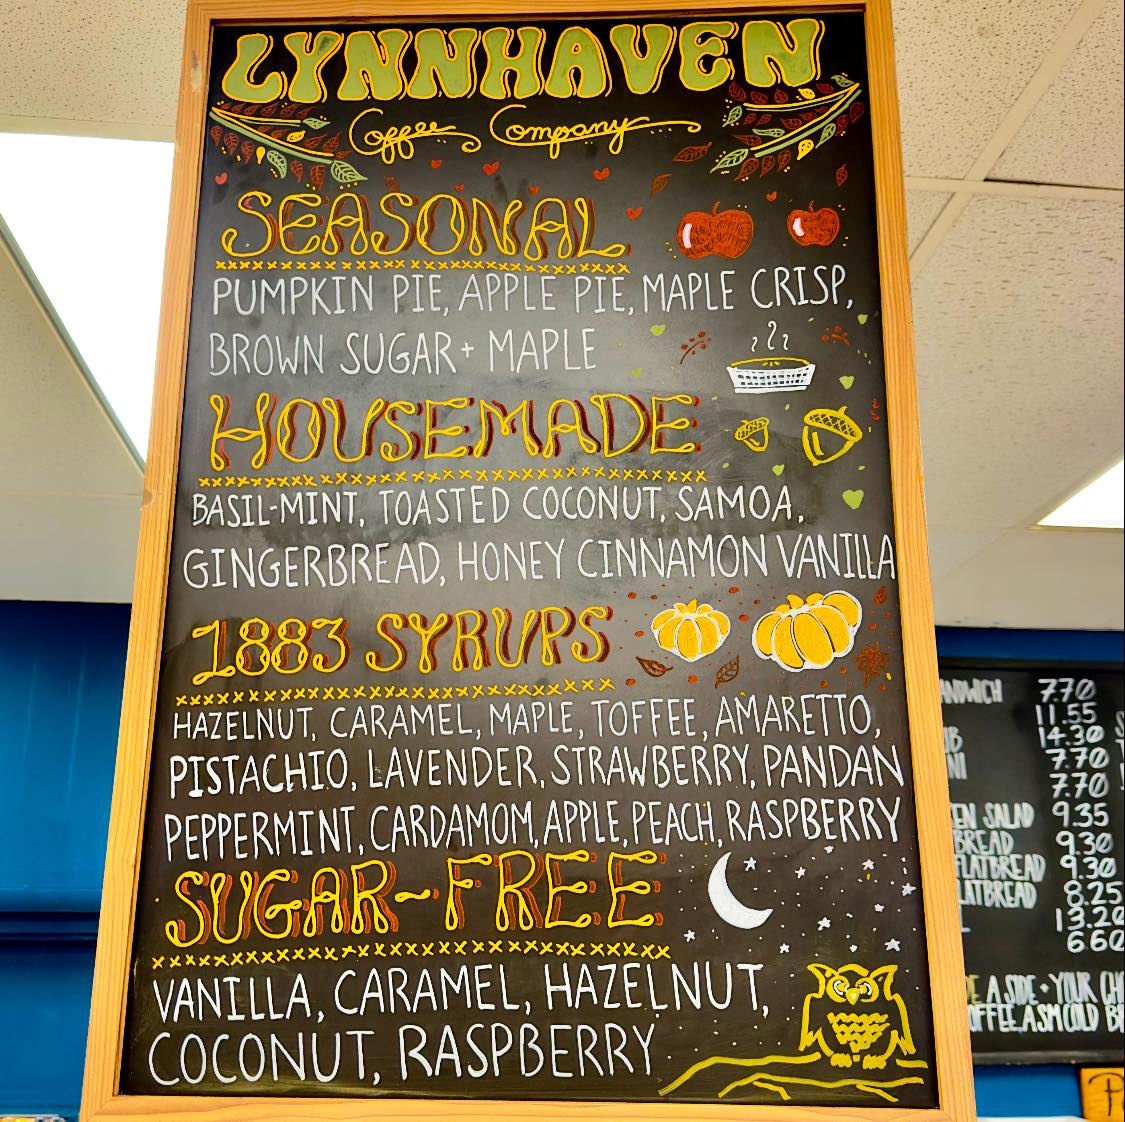 LYNNHAVEN
Coffee Company
SEASONAL
PUMPKIN PIE, APPLE PIE, MAPLE CRISP,
BROWN SUGAR + MAPLE
HOUSEMADE
BASIL-MINT, TOASTED COCONUT, SAMOA,
GINGERBREAD, HONEY CINNAMON VANILLA
1883 SYRUPS
HAZELNUT, CARAMEL, MAPLE, TOFFEE, AMARETTO,
PISTACHIO, LAVENDER, STRAWBERRY, PANDAN
PEPPERMINT, CARDAMOM, APPLE, PEACH, RASPBERRY
SUGAR-FREE
VANILLA, CARAMEL, HAZELNUT,
COCONUT, RASPBERRY
ANDWICH 7.70
11.55
UB 14.30
NI 7.70
7.70
EN SALAD 9.35
BREAD 9.30
FLATBREAD 9.30
LATBREAD 8.25
13.20
6.60
A SIDE • YOUR CH
OFFEE, ASM COLD B